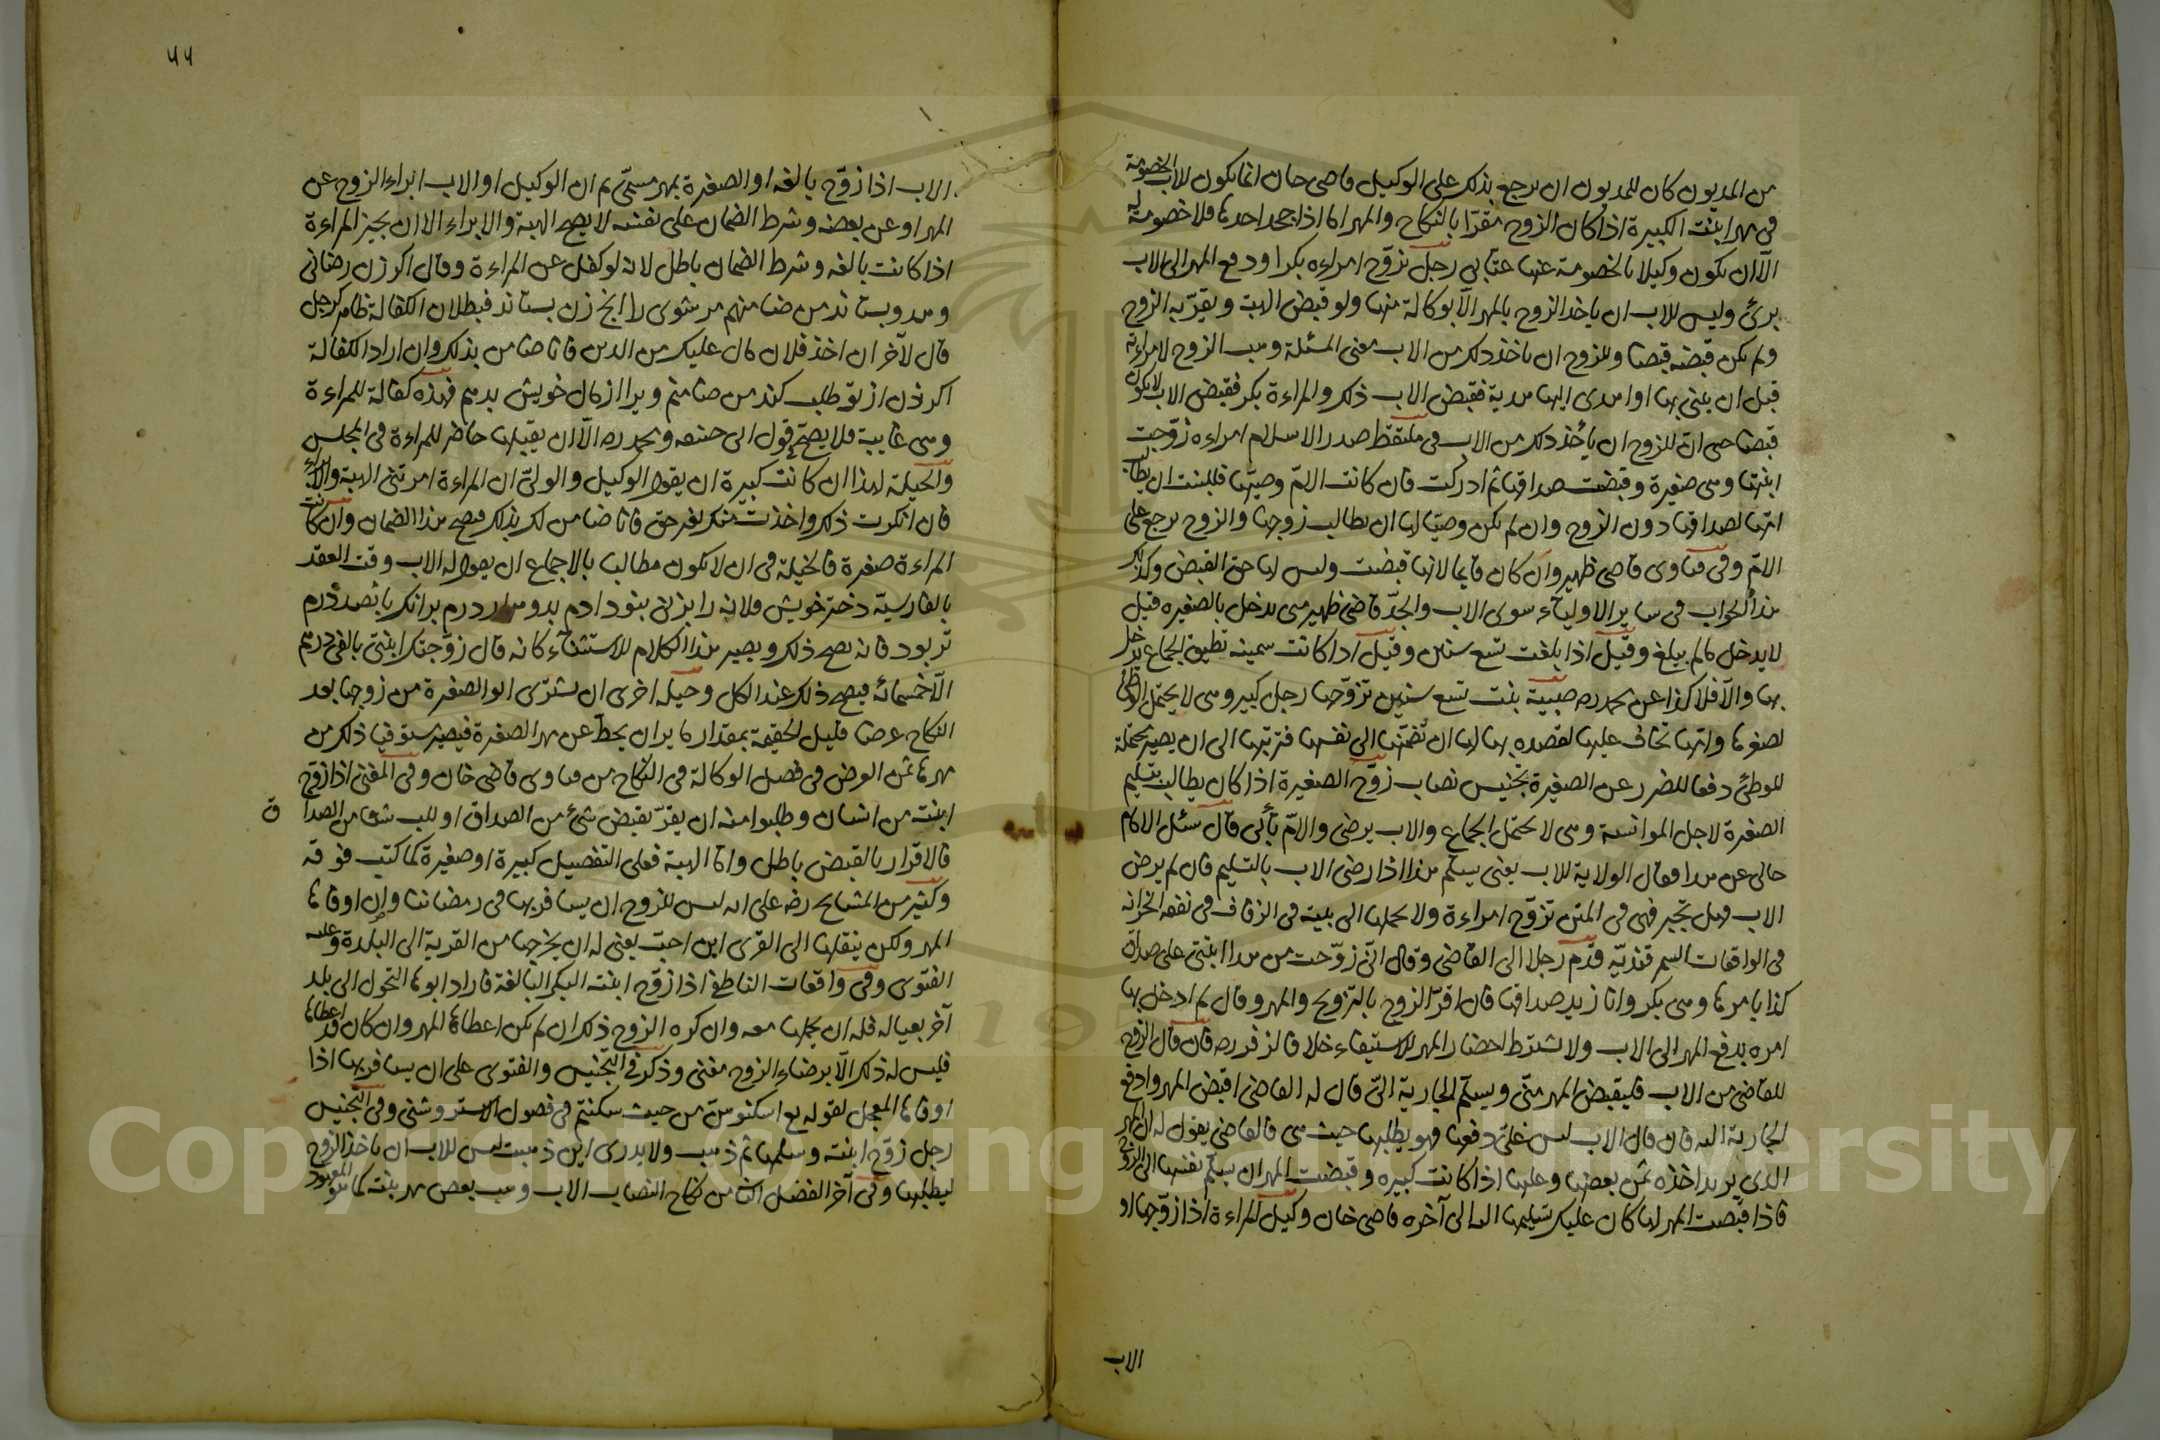 من المديون كان للمديون ان يرجع بذلك على الوكيل قاضى خان انما يكون للاب الخصومة
فى مهر ابنته الكبيرة اذا كان الزوج مقرا بالنكاح والمهر اما اذا جحد احدهما فلا خصومة له
الا ان يكون وكيلا بالخصومة عنها عتابى رجل تزوج امراءه بكرا ودفع المهر الى الاب
برئ وليس للاب ان ياخذ الزوج بالمهر الا بوكالة منها ولو قبض الهبة ويقر به الزوج
ولم يكن قبضه قبضا وللزوج ان ياخذ ذلك من الاب معنى المسئلة وهب الزوج لامراءته
قبل ان يبنى بها او اهدى اليها هدية فقبض الاب ذلك والمراءة بكر فقبض الاب لا يكون
قبضا حتى ان للزوج ان يأخذ ذلك من الاب فى ملتقط صدر الاسلام امراءه زوجت
ابنتها وهى صغيرة وقبضت صداقها ثم ادركت فان كانت الام وصيتها فللبنت ان يطالب
امها بصداقها دون الزوج وان لم يكن وصيا لها ان يطالب زوجها والزوج يرجع على
الام وفى فتاوى قاضى ظهير وان كان قايما لانها قبضت وليس لها حق القبض وكذلك
هذا الجواب فى ساير الاولياء سوى الاب والجد قاضى ظهير متى يدخل بالصغيره قيل
لا يدخل ما لم يبلغ وقيل اذا بلغت تسع سنين وقيل اذا كانت سمينه تطيق الجماع يدخل
بها والا فلا كذا عن محمد ره صبية بنت تسع سنين تزوجها رجل كبير وهى لا يحتمل الوطئ
لصغرها وامها تخاف عليها لقصده بها لها ان تضمها الى نفسها فتربيها الى ان يصير محتملة
للوطئ دفعا للضرر عن الصغيرة تجنيس نصاب زوج الصغيرة اذا كان يطالب بتسليم
الصغرة لاجل الموانسة وهى لا تحتمل الجماع والاب يرضى والام يأبى قال سئل الامام
خالى عن هذا فقال الولاية للاب يعنى يسلم هذا اذا رضى الاب بالتسليم فان لم يرض
الاب فهل تجبر فهى فى المتن تزوج امراءة ولا يحملها الى بيته فى الزفاف فى نفقه الخزانه
فى الواقعات السمرقنديه قدم رجلا الى القاضى وقال انى زوجت من هذا ابنتى على صداق
كذا بامرها وهى بكر وانا زيد صداقها فان اقر الزوج بالتزويج والمهر وقال لم ادخل بها
امره بدفع المهر الى الاب ولا يشترط احضار المهر للاستيفاء خلافا لزفر ره فان قال الزوج
للقاضى من الاب فليقبض المهر منى ويسلم الجارية الى قال له القاضى اقبض المهر وادفع
الجارية اليه فان قال الاب ليس على دفعها فهو يطلبها حيث هى فالقاضى يقول له ان المهر
الذى يريد اخذه ثمن بعضها وعليها اذا كانت كبيره وقبضت المهر ان يسلم نفسها الى الزوج
فاذا قبضت المهر لها كان عليك تسليمها اليه الى آخره قاضى خان وكيل المراءة اذا زوجها او
الاب
٧٧
الاب اذا زوج بالغه او الصغيرة بمهر مسمى ثم ان الوكيل او الاب ابراء الزوج عن
المهر او عن بعضه وشرط الضمان على نفسه لا يصح الهبة والابراء الا ان يجيز المراءة
اذا كانت بالغه وشرط الضمان باطل لانه لو كفل عن المراءة وقال اكر زن رضانى
و بستاند من ضامنم بستاند فبطلان الكفالة ظاهر كرجل
قال لآخر ان اخذ فلان مال عليك من الدين فانا ضامن بذلك وان اراد الكفالة
اكر زن از تو طلب كند من ضامنم ويرا از مال خويش بدهم فهذه كفالة للمراءة
وهى غايبة فلا يصح فى قول ابى حنيفه ومحمد ره الا ان يقبلها حاضر للمراءة فى المجلس
والحيلة لهذا ان كانت كبيرة ان يقول الوكيل والولى ان المراءة امرتنى الهبة والابراء
فان انكرت ذلك واخذت منك بغير حق فانا ضامن لك بذلك فيصح هذا الضمان وان كانت
المراءة صغيرة فالحيلة فى ان لا يكون مطالبا بالاجماع ان يقول له الاب وقت العقد
بالفارسية دختر خويش فلانه را بزنى بتو دادم بدو هزار درم برانكه پانصد درم
تر بود فانه يصح ذلك ويصير هذا الكلام للاستثناء كانه قال زوجتك ابنتى بالفى درهم
الا خمسمائه فيصح ذلك عند الكل وحيلة اخرى ان يشترى ابو الصغيرة من زوجها بعد
النكاح عرضا قليل القيمة بمقدار ما يريد ان يحط عن مهر الصغيرة فيصير مستوفيا ذلك من
مهرها ثمن العرض فى فصل الوكالة فى النكاح من فتاوى قاضى خان وفى المغنى اذا زوج
ابنته من انسان وطلبوا منه ان يقر بقبض شئ من الصداق او يهب شيئا من الصداق
فالاقرار بالقبض باطل واما الهبة فعلى التفصيل كبيرة او صغيرة كما كتب فوقه
وكثير من المشايخ رضه على انه ليس للزوج ان يسافر بها فى زماننا وان اوفاها
المهر ولكن ينقلها الى القرى اين احب يعنى له ان يخرجها من القرية الى البلدة وعليه
الفتوى وفى واقعات الناطفى اذا زوج ابنته البكر البالغة فاراد ابوها التحول الى بلد
آخر بعياله فله ان يحملها معه وان كره الزوج ذلك ان لم يكن اعطاها المهر وان كان قد اعطاها
فليس له ذلك الا برضاء الزوج مغنى وذكر فى التجنيس والفتوى على ان يسافر بها اذا
اوفاها المعجل لقوله تع اسكنوهن من حيث سكنتم فى فصول الاستروشنى وفى التجنيس
رجل زوج ابنته وسلمها ثم ذهب ولا يدرى اين ذهبت ليس للاب ان ياخذ الزوج
ليطلبها وفى آخر الفصل الثامن من نكاح النصاب الاب وهب بعض مهر بنته كما هو المعهود